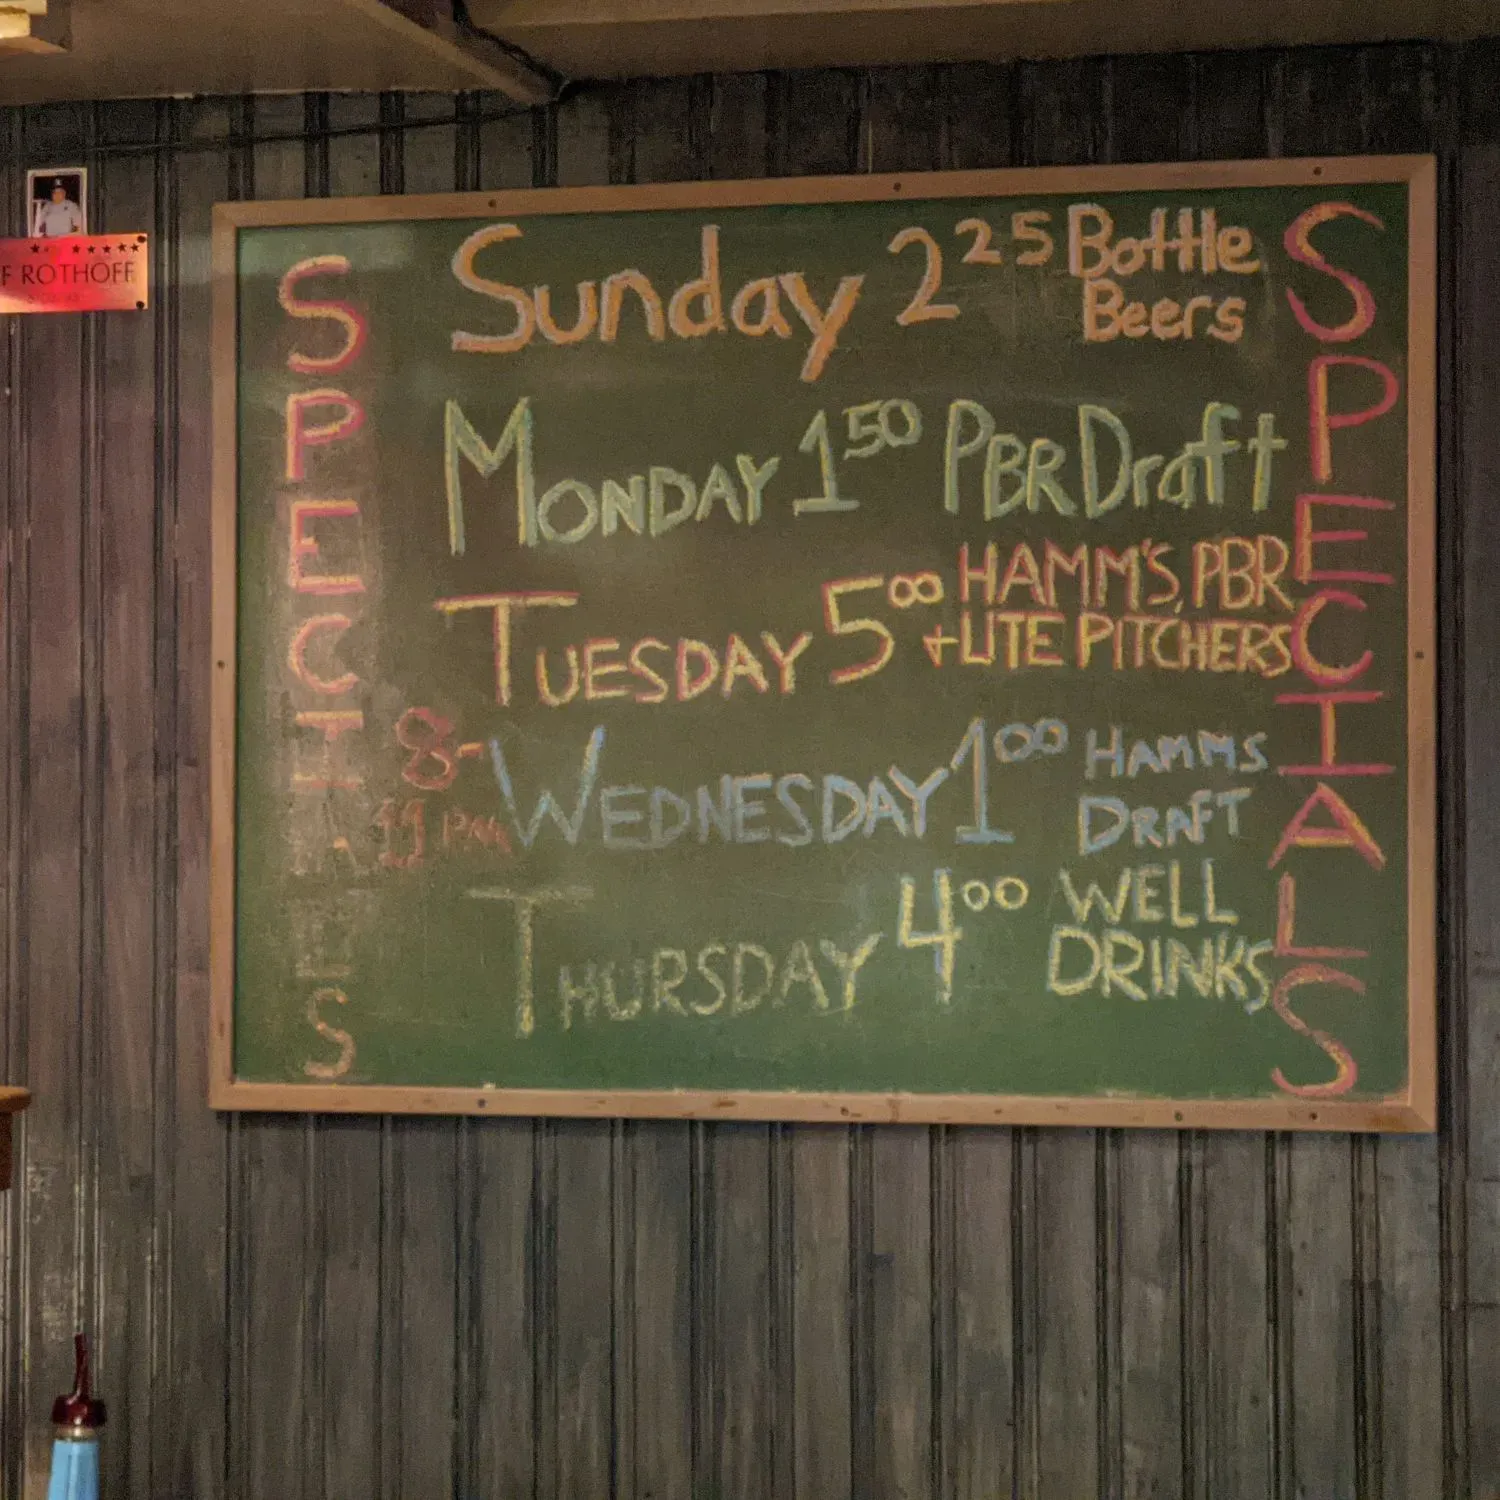 F ROTHOFF
SPECIALS
Sunday 2 25 Bottle
Beers
MONDAY 1 50 PBR Draft
TUESDAY 5 00 HAMM'S, PBR
+ LITE PITCHERS
8-
11 PM
WEDNESDAY 1 00 HAMMS
DRAFT
THURSDAY 4 00 WELL
DRINKS
SPECIALS